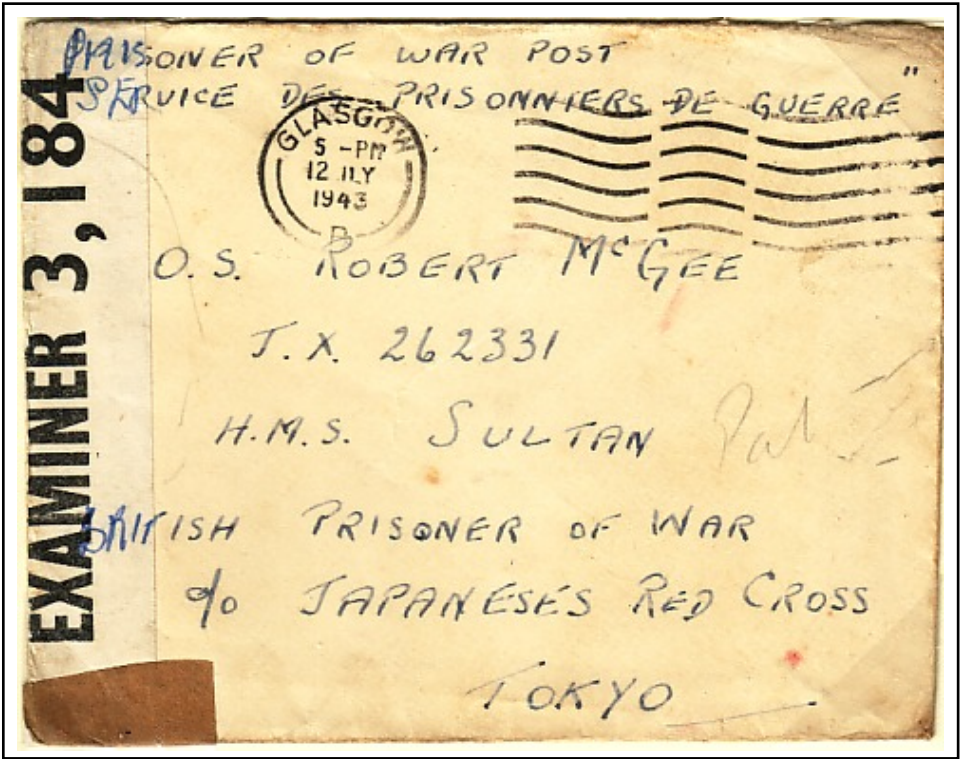 PRISONER OF WAR POST "
SERVICE DES PRISONNIERS DE GUERRE
GLASGOW
5 - PM
12 JLY
1943
O.S. ROBERT McGEE
J.X. 262331
H.M.S. SULTAN
BRITISH PRISONER OF WAR
c/o JAPANESES RED CROSS
TOKYO
EXAMINER 3,184